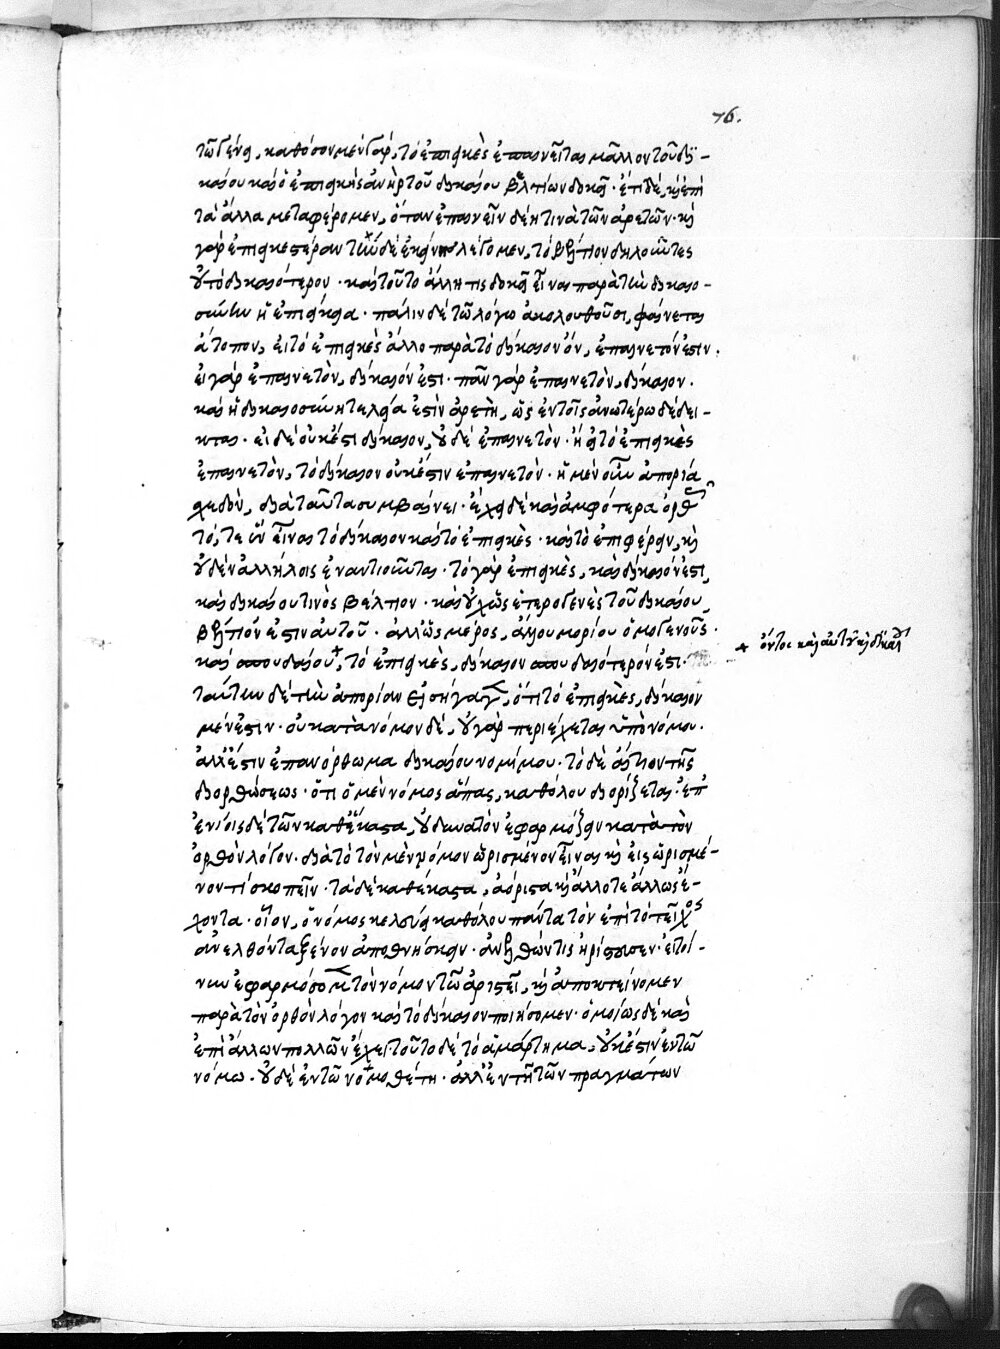 76.
τῷ γένει, καθόσον μὲν γὰρ, τὸ ἐπιεικὲς ἐπαινεῖται μᾶλλον τοῦ δι-
καίου καὶ ὁ ἐπιεικὴς ἀνὴρ τοῦ δικαίου βελτίων δοκεῖ· ἔτι δὲ, καὶ ἐπὶ
τὰ ἄλλα μεταφέρομεν, ὅταν ἐπαινεῖν δέῃ τινὰ τῶν ἀρετῶν· καὶ
γὰρ ἐπιεικεστέραν τήνδε ἐκείνης λέγομεν, τὸ βέλτιον δηλοῦντες
οὐ τὸ δικαιότερον· κατὰ τοῦτο ἄλλη τις δοκεῖ εἶναι παρὰ τὴν δικαιο-
σύνην ἡ ἐπιείκεια· πάλιν δὲ τῷ λόγῳ ἀκολουθοῦσι, φαίνεται
ἄτοπον, εἰ τὸ ἐπιεικὲς ἄλλο παρὰ τὸ δίκαιον ὂν, ἐπαινετόν ἐστιν.
εἰ γὰρ ἐπαινετὸν, δίκαιόν ἐστι· πᾶν γὰρ ἐπαινετὸν, δίκαιον.
καὶ ἡ δικαιοσύνη τελεία ἐστὶν ἀρετὴ, ὡς ἐν τοῖς ἀνωτέρω δέδει-
κται· εἰ δὲ οὐκ ἔστι δίκαιον, οὐδὲ ἐπαινετὸν· ἢ εἰ τὸ ἐπιεικὲς
ἐπαινετὸν, τὸ δίκαιον οὐκ ἔστιν ἐπαινετὸν· ἡ μὲν οὖν ἀπορία
σχεδὸν, διὰ ταῦτα συμβαίνει· ἔχει δὲ καὶ ἀμφότερα ὀρθῶς
τό, τε ἓν εἶναι τὸ δίκαιον καὶ τὸ ἐπιεικὲς· καὶ τὸ ἐπιφέρειν, καὶ
οὐδὲν ἀλλήλοις ἐναντιοῦται· τὸ γὰρ ἐπιεικὲς, καὶ δίκαιόν ἐστι,
καὶ δικαίου τινὸς βέλτιον· καὶ οὐχ ὡς ἑτερογενὲς τοῦ δικαίου
βέλτιόν ἐστιν αὐτοῦ· ἀλλ' ὡς μέρος, ἄλλου μορίου ὁμογενοῦς·
καὶ σπουδαίου+, τὸ ἐπιεικὲς, δίκαιον σπουδαιότερόν ἐστι·
+ ὄντος καὶ αὐτοῦ καὶ δικαίου
ταύτην δὲ τὴν ἀπορίαν εἰσήγαγεν, ὅτι τὸ ἐπιεικὲς, δίκαιον
μέν ἐστιν· οὐ κατὰ νόμον δέ, οὐ γὰρ περιέχεται ὑπὸ νόμου·
ἀλλ' ἔστιν ἐπανόρθωμα δικαίου νομίμου· τὸ δὲ αἴτιον τῆς
διορθώσεως· ὅτι ὁ μὲν νόμος ἅπας, καθόλου διορίζεται· ἐπ'
ἐνίοις δὲ τῶν καθέκαστα, οὐ δυνατὸν ἐφαρμόζειν κατὰ τὸν
ὀρθὸν λόγον· διὰ τὸ τὸν μὲν νόμον ὡρισμένον εἶναι καὶ εἰς ὡρισμέ-
νον τι σκοπεῖν· τὰ δὲ καθέκαστα, ἀόριστα καὶ ἄλλοτε ἄλλως ἔ-
χοντα· οἷον, ὁ νόμος κελεύει καθόλου πάντα τὸν ἐπὶ τὸ τεῖχος
ἀνελθόντα ξένον ἀποθνήσκειν· ἀνελθών τις ἠρίστευσεν· εἰ τοί-
νυν ἐφαρμόσομεν τὸν νόμον τῷ ἀριστεῖ, καὶ ἀποκτείνομεν
παρὰ τὸν ὀρθὸν λόγον καὶ τὸ δίκαιον ποιήσομεν· ὁμοίως δὲ καὶ
ἐπὶ ἄλλων πολλῶν ἔχει· τοῦτο δὲ τὸ ἁμάρτημα, οὐκ ἔστιν ἐν τῷ
νόμῳ· οὐδὲ ἐν τῷ νομοθέτῃ· ἀλλ' ἐν τῇ τῶν πραγμάτων